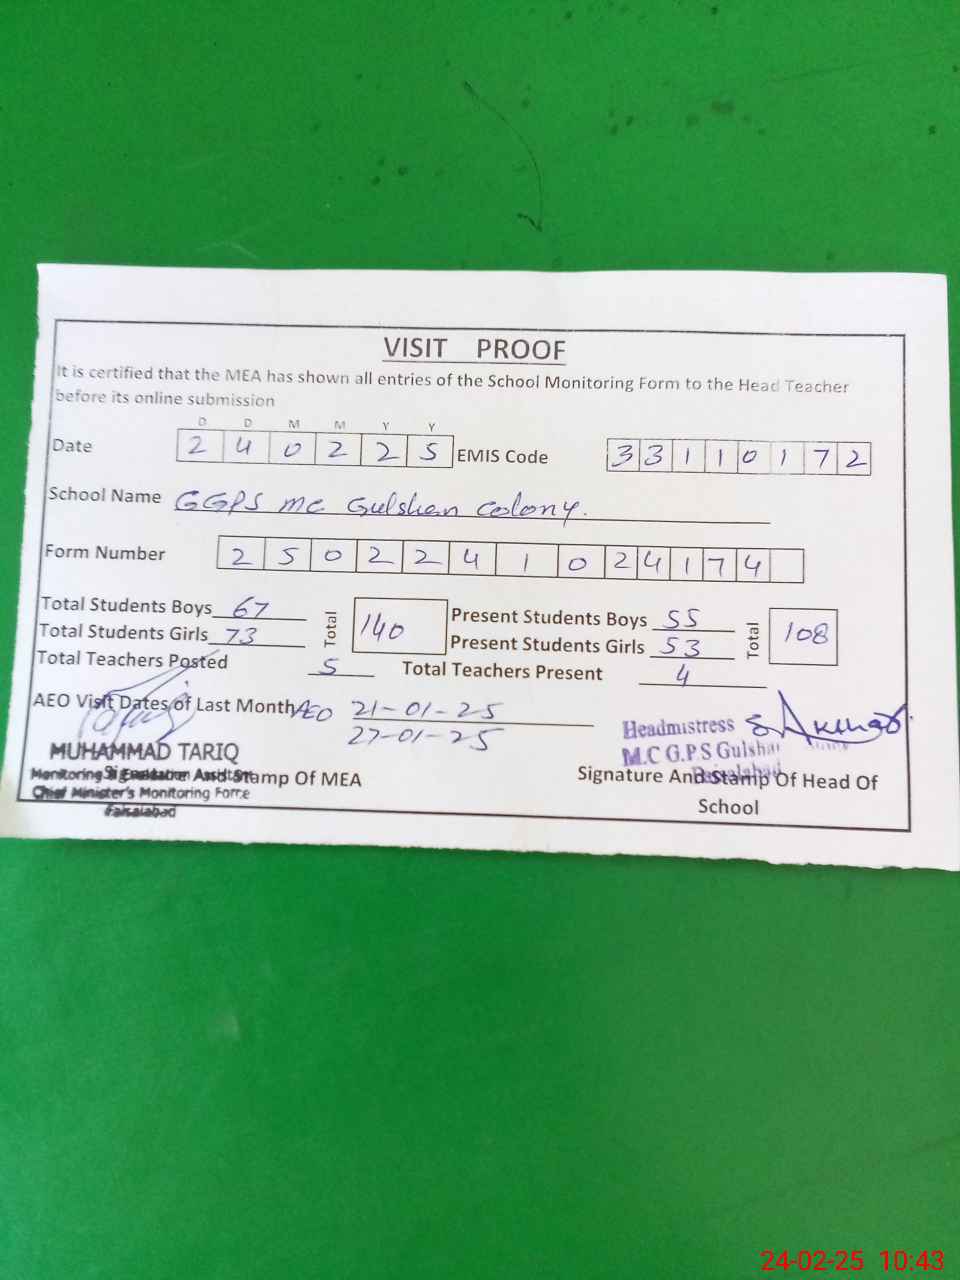 VISIT PROOF
It is certified that the MEA has shown all entries of the School Monitoring Form to the Head Teacher
before its online submission
D D M M Y Y
Date 2 4 0 2 2 5 EMIS Code 3 3 1 1 0 1 7 2
School Name GGPS MC Gulshan Colony.
Form Number 2 5 0 2 2 4 1 0 2 4 1 7 4
Total Students Boys 67 Total 140 Present Students Boys 55 Total 108
Total Students Girls 73 Present Students Girls 53
Total Teachers Posted 5 Total Teachers Present 4
AEO Visit Dates of Last Month AEO 21-01-25
27-01-25
Headmistress
M.C G.P.S Gulshan
Faisalabad
MUHAMMAD TARIQ
Monitoring & Evaluation Assistant
Chief Minister's Monitoring Force
Faisalabad
Signature And Stamp Of MEA
Signature And Stamp Of Head Of
School
24-02-25 10:43